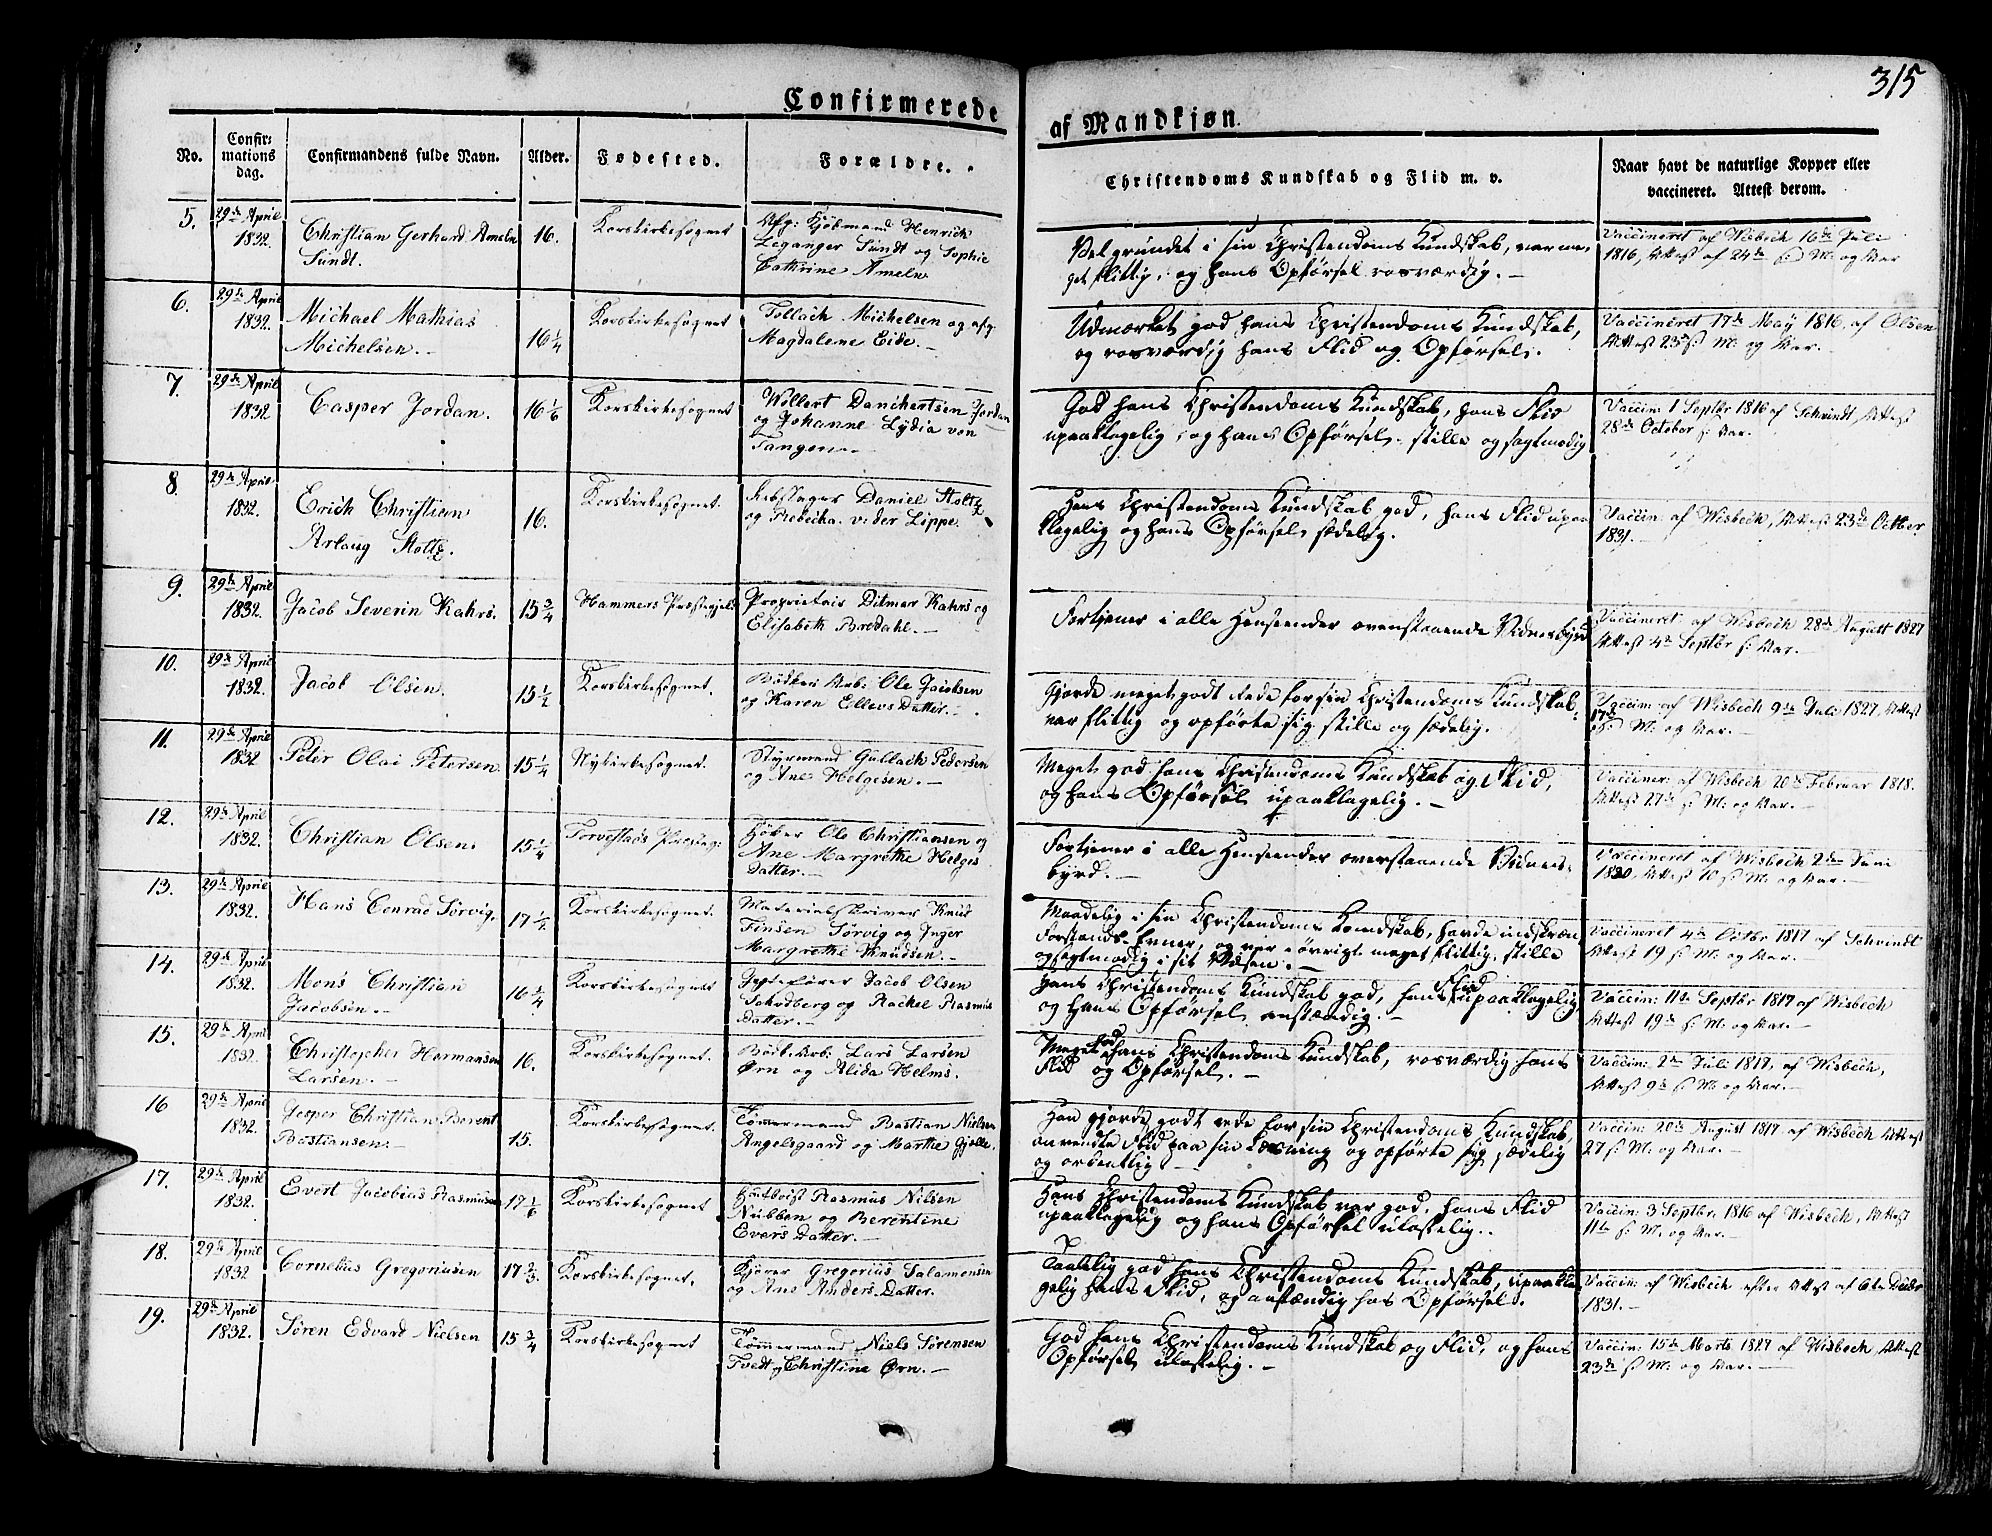 315
Confirmerede
af Mandkjøn.
No.
Confir-
mations
dag.
Confirmandens fulde Navn.
Alder.
Fødested.
Forældre.
Christendoms Kundskab og Flid m. v.
Naar havt de naturlige Kopper eller
vaccineret. Attest derom.
5.
29de April
1832.
Christian Gerhard Ameln
Sundt.
16.
Korskirkesognet
Afg: Kjøbmand Henrich
Leganger Sundt og Sophie
Cathrine Ameln
Vel grundet i sin Christendoms Kundskab, var me-
get flittig, og hans Opførsel rosværdig.
Vaccineret af Wisbech 16de Juli
1816, Attest af 24de s: M: og Aar
6.
29de April
1832.
Michael Mathias
Michelsen.
16 1/4
Korskirkesognet
Tollach Michelsen og afg.
Magdalene Eide.
Udmærket god hans Christendoms Kundskab,
og rosværdig hans Flid og Opførsel.
Vaccineret 17de May 1816, af Olsen
Attest 23de s: M: og Aar.
7.
29de April
1832
Casper Jordan.
16 1/6
Korskirkesognet
Wollert Danckertsen Jordan
og Johanne Lydia von
Tangen.
God hans Christendoms Kundskab, hans Flid
upaaklagelig, og hans Opførsel stille og sagtmodig
Vaccin: 1 Septbr 1816 af Schvindt, Attest
28de October s: Aar.
8.
29de April
1832.
Erich Christian
Arlaug Stoltz.
16.
Korskirkesognet.
Daniel Stoltz
og Rebecka v: der Lippe.
Hans Christendoms Kundskab god, hans Flid upaa-
klagelig og hans Opførsel sædelig.
Vaccin: af Wisbech, Attest 23de Octbr.
1831.
9.
29de April
1832.
Jacob Severin Kahrs.
15 3/4
Hammers Præstegjeld
Proprietair Ditmer Kahrs og
Elisabeth Bredahl.
Fortjener i alle Henseender ovenstaaende Vidnesbyrd
Vaccineret af Wisbech 28de August 1827
Attest 4de Septbr s: Aar.
10.
29de April
1832.
Jacob Olsen.
15 1/2
Korskirkesognet.
Bödker Arb: Ole Jacobsen
og Karen Ellevs Datter.
Gjorde meget godt Rede for sin Christendoms Kundskab,
var flittig og opførte sig stille og sædelig.
Vaccin: af Wisbech 9de Juli 1827, Attest
17de s: M: og Aar.
11.
29de April
1832
Peter Olai Petersen.
15 1/4
Nykirkesognet.
Styrmand Gullach Pedersen
og Ane Helgesen.
Meget god hans Christendoms Kundskab og Flid,
og hans Opførsel upaaklagelig.
Vacciner: af Wisbech 20de Februar 1818.
Attest 27de s: M: og Aar.
12.
29de April
1832.
Christian Olsen.
15 1/4
Torvestads Præsteg:
Høker Ole Christiansen og
Ane Margrethe Helges
Datter.
Fortjener i alle Henseender overstaaende Vidnes-
byrd.
Vaccineret af Wisbech 2den Juni
1820, Attest 10 s: M: og Aar.
13.
29de April
1832.
Hans Conrad Sørvig.
17 1/2
Korskirkesognet.
Materialskriver Knud
Finsen Sørvig og Inger
Margrethe Knudsen.
Maadelig i sin Christendoms Kundskab, havde indskræn
Forstands-Evner, og var i øvrigt meget flittig, stille
og sagtmodig i sit Væsen.
Vaccineret 4de Octbr 1817 af Schvindt
Attest 19 s: M: og Aar.
14.
29de April
1832.
Mons Christian
Jacobsen.
16 3/4
Korskirkesognet
Jacob Olsen
og Rackel Rasmus
Datter.
Hans Christendoms Kundskab god, hans Flid upaaklagelig
og hans Opførsel anstændig.
Vaccin: 11te Septbr 1817 af Wisbech
Attest 19de s: M: og Aar.
15.
29de April
1832.
Christopher Hermansen
Larsen.
16.
Korskirkesognet.
Bødk: Arb: Lars Larsen
Ørn og Alida Helms.
Meget god hans Christendoms Kundskab, rosværdig hans
Flid og Opførsel.
Vaccin: 2de Juli 1817, af Wisbech,
Attest 9de s: M: og Aar.
16
29de April
1832.
Jesper Christian Berent
Bastiansen.
15.
Korskirkesognet.
Tømmermand Bastian Nielsen
Angelsgaard og Marthe Gjelle.
Han gjorde godt rede for sin Christendoms Kundskab,
anvendte Flid paa sin Læsning og opførte sig sædelig
og ordentlig
Vaccin: 20de August 1817, af Wisbech Attest
27 s: M: og Aar.
17.
29de April
1832.
Evert Jacobias Rasmusen
17 1/6
Korskirkesognet
Hautboist Rasmus Nilsen
Nubben og Berentine
Evers Datter.
Hans Christendoms Kundskab var god, hans Flid
upaaklagelig og hans Opførsel ulastelig.
Vaccin: 3 Septbr. 1816 af Wisbech, Attest
11te s: M: og Aar.
18.
29de April
1832
Cornelius Gregoriusen
17 2/3.
Korskirkesognet.
Kjører Gregorius Salamonsen
og Ane Anders Datter.
Taalelig god hans Christendoms Kundskab, upaakla-
gelig hans Flid, og anstændig hans Opførsel.
Vaccin: af Wisbech efter Attest af
1831.
19.
29de April
1832.
Søren Edvard Nielsen
15 3/4
Korskirkesognet
Tømmermand Niels Sørensen
Tvedt og Christine Ørn.
God hans Christendoms Kundskab og Flid, og hans
Opførsel ulastelig.
Vaccin: 15de Marts 1827 af Wisbech, Attest
23de s: M: og Aar.